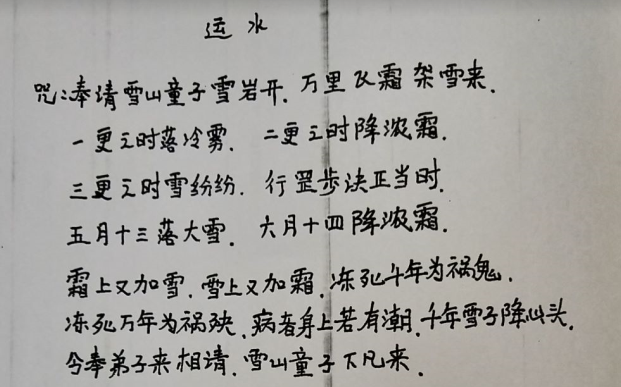 运水
咒:奉请雪山童子雪岩开.万里飞霜架雪来.
一更之时落冷雾.二更之时降浓霜.
三更之时雪纷纷.行罡步诀正当时.
五月十三落大雪.六月十四降浓霜.
霜上又加雪.雪上又加霜.冻死千年为祸鬼.
冻死万年为祸殃.病者身上若有潮.千年雪子降山头.
今奉弟子来相请.雪山童子下凡来.